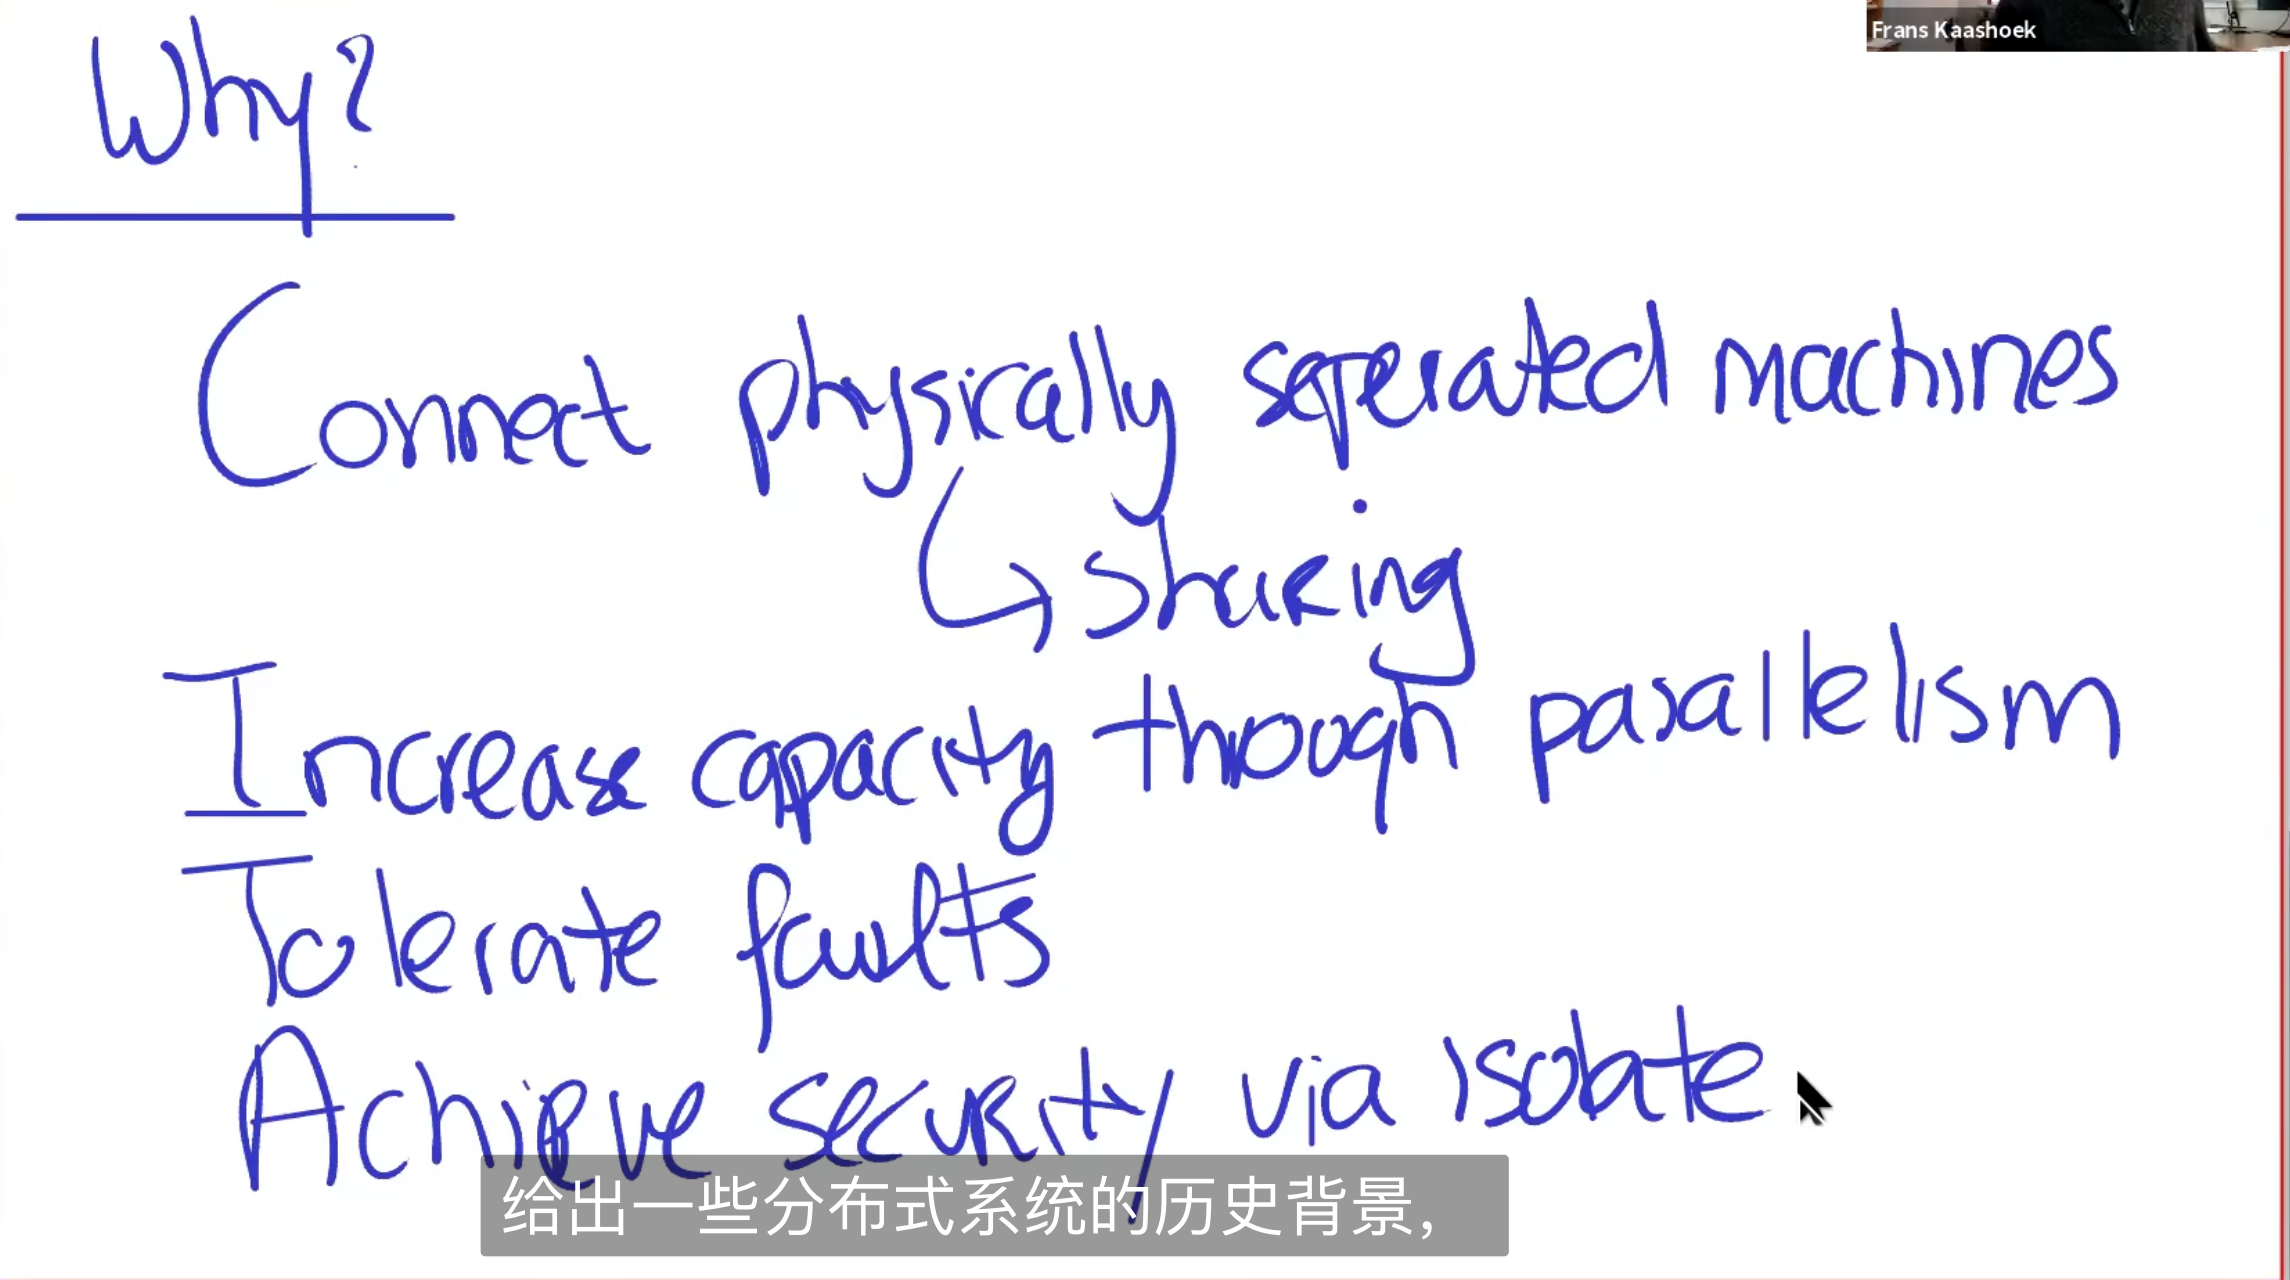 Frans Kaashoek
Why?
Connect physically seperated machines
↳ sharing
Increase capacity through parallelism
Tolerate faults
Achieve security via isolate
给出一些分布式系统的历史背景，